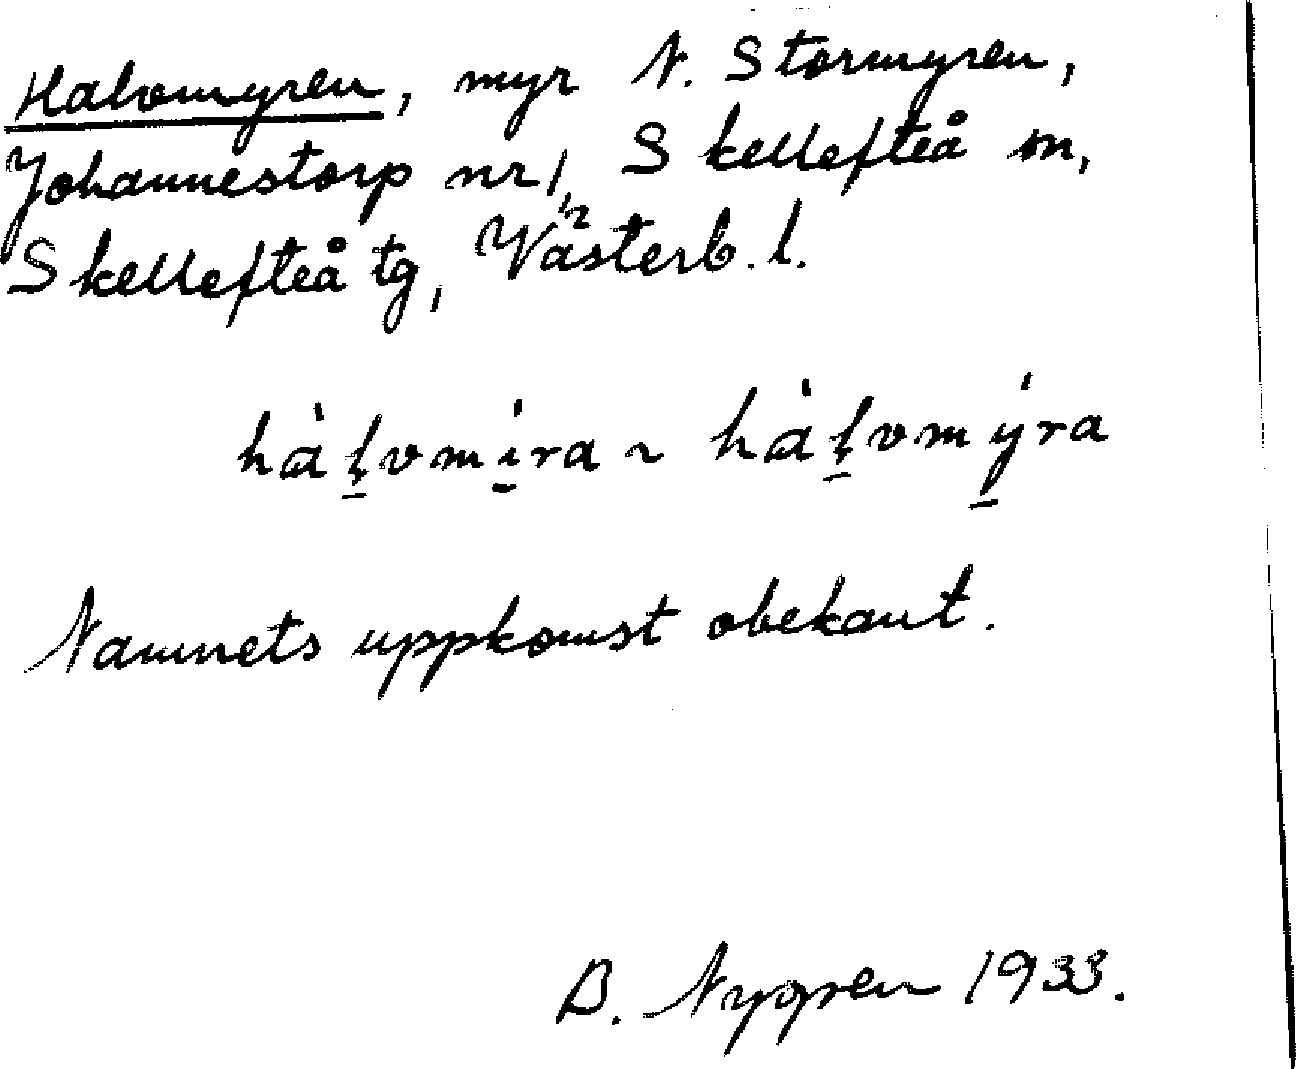 Halvmyren, myr N. Stormyren,
Johannestorp nr 1/2, Skellefteå sn,
Skellefteå tg, Västerb. l.
hàḷvmi̱ra ~ hàḷvmy̱ra
Namnets uppkomst obekant.
B. Nygren 1933.